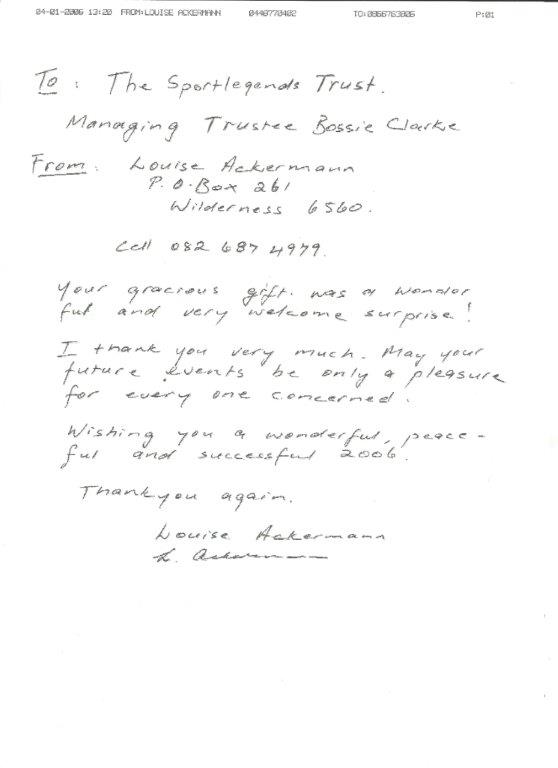 04-01-2006 13:20 FROM:LOUISE ACKERMANN 0448770402 TO:0866763806 P:01
To : The Sportlegends Trust.
Managing Trustee Bossie Clarke
From: Louise Ackermann
P.O.Box 261
Wilderness 6560.
Cell 082 687 4979.
Your gracious gift. was a wonder
ful and very welcome surprise!
I thank you very much. May your
future events be only a pleasure
for every one concerned.
Wishing you a wonderful, peace-
ful and successful 2006.
Thankyou again.
Louise Ackermann
L. Ackermann